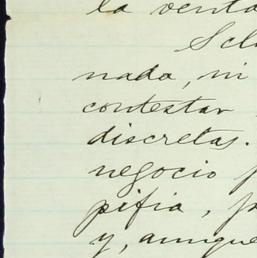 la venta
nada, ni
contestar
discretas.
negocio
pifia,
y, aunque